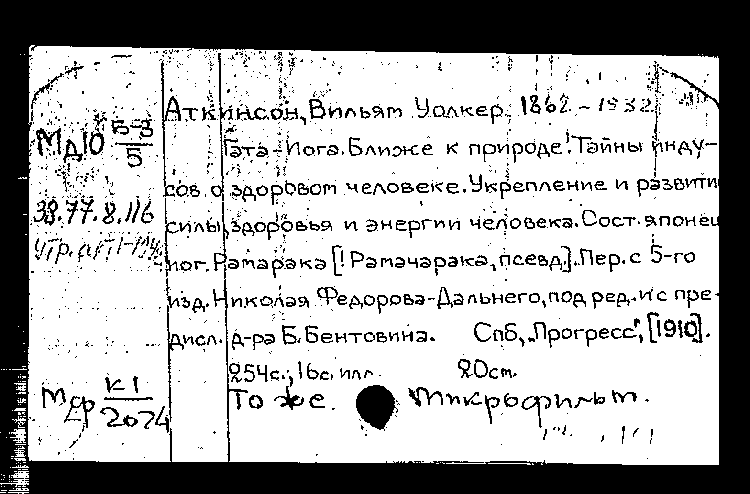 Аткинсон, Вильям Уолкер. 1862 - 1932.
Мд10 Б-3/5
Гата-Иога. Ближе к природе! Тайны инду-
сов о здоровом человеке. Укрепление и развити
38.77.8.116
силы, здоровья и энергии человека. Сост. японец
иог. Рамарака [! Рамачарака, псевд.]. Пер. с 5-го
изд. Николая Федорова-Дальнего, под ред. и с пре-
дисл. д-ра Б. Бентовина. Спб, „Прогресс", [1910].
254с.; 16с. илл. 20см.
Мфр К1/2074
То же. Микрофильм.